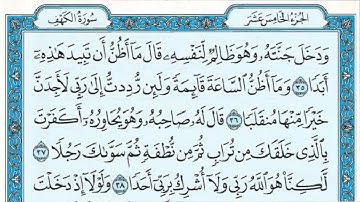 الجزء الخامس عشر
سورة الكهف
وَدَخَلَ جَنَّتَهُۥ وَهُوَ ظَالِمٌ لِّنَفْسِهِۦ قَالَ مَآ أَظُنُّ أَن تَبِيدَ هَٰذِهِۦٓ
أَبَدًا ٣٥ وَمَآ أَظُنُّ ٱلسَّاعَةَ قَآئِمَةً وَلَئِن رُّدِدتُّ إِلَىٰ رَبِّى لَأَجِدَنَّ
خَيْرًا مِّنْهَا مُنقَلَبًا ٣٦ قَالَ لَهُۥ صَاحِبُهُۥ وَهُوَ يُحَاوِرُهُۥٓ أَكَفَرْتَ
بِٱلَّذِى خَلَقَكَ مِن تُرَابٍ ثُمَّ مِن نُّطْفَةٍ ثُمَّ سَوَّىٰكَ رَجُلًا ٣٧
لَّٰكِنَّا۠ هُوَ ٱللَّهُ رَبِّى وَلَآ أُشْرِكُ بِرَبِّىٓ أَحَدًا ٣٨ وَلَوْلَآ إِذْ دَخَلْتَ